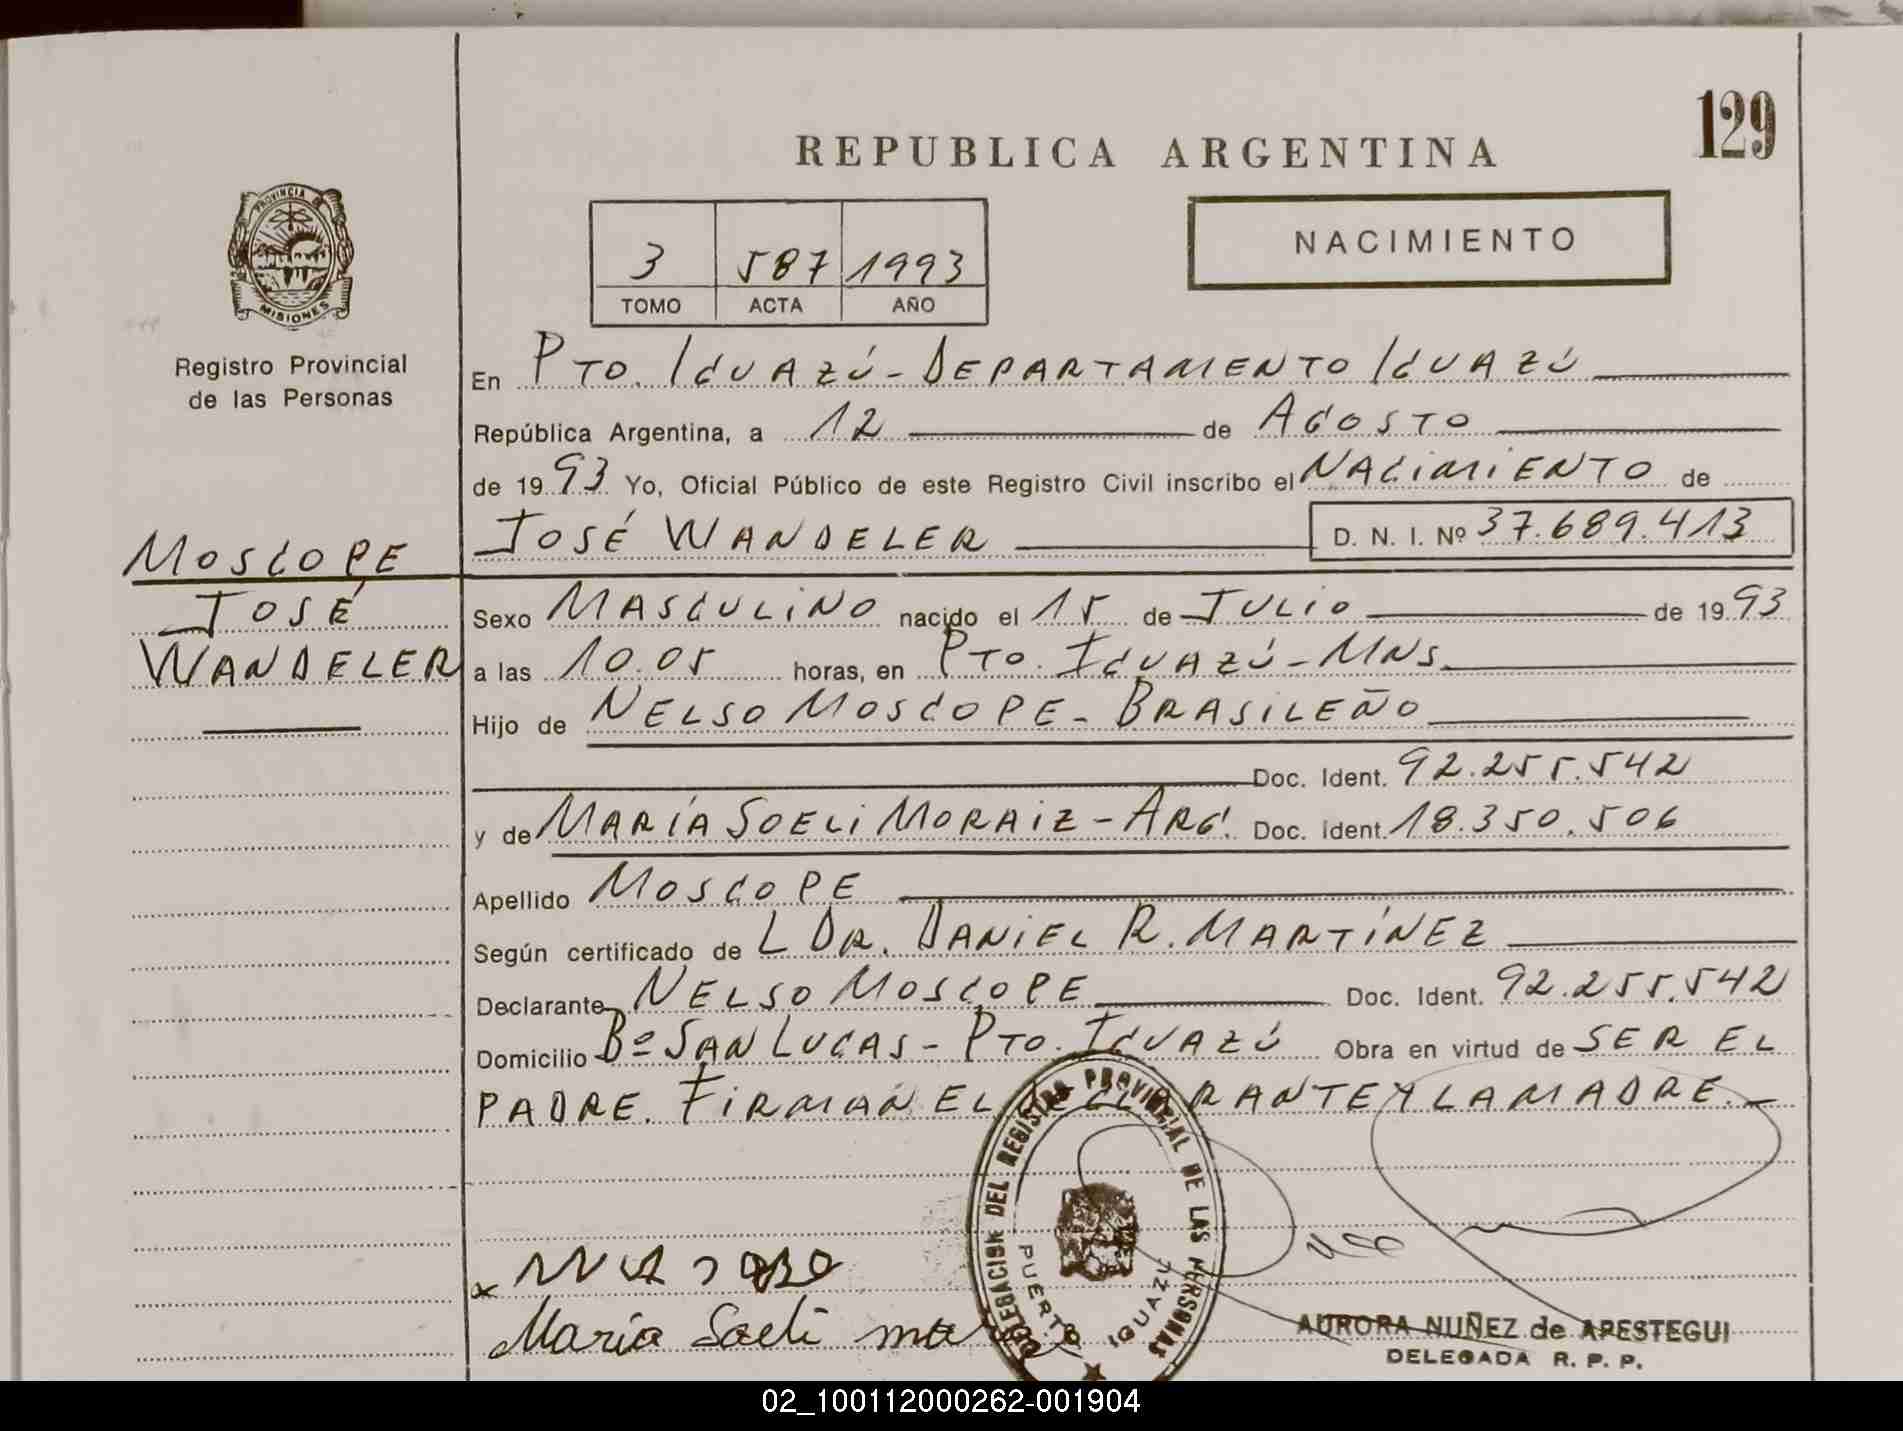 129
REPUBLICA ARGENTINA
PROVINCIA DE
MISIONES
3 587 1993
TOMO ACTA AÑO
NACIMIENTO
Registro Provincial
de las Personas
En PTO. IGUAZÚ - DEPARTAMENTO IGUAZÚ
República Argentina, a 12 de AGOSTO
de 1993 Yo, Oficial Público de este Registro Civil inscribo el NACIMIENTO de
JOSÉ WANDELER D. N. I. Nº 37.689.413
MOSCOPE
JOSÉ
WANDELER
Sexo MASCULINO nacido el 15 de JULIO de 1993
a las 10.05 horas, en PTO. IGUAZÚ - MNS
Hijo de NELSO MOSCOPE - BRASILEÑO
Doc. Ident. 92.255.542
y de MARÍA SOELI MORAIZ - ARG. Doc. Ident. 18.350.506
Apellido MOSCOPE
Según certificado de L DR. DANIEL R. MARTÍNEZ
Declarante NELSO MOSCOPE Doc. Ident. 92.255.542
Domicilio Bº SAN LUCAS - PTO. IGUAZÚ Obra en virtud de SER EL
PADRE. FIRMAN EL DECLARANTE Y LA MADRE. -
DELEGACION DEL REGISTRO PROVINCIAL DE LAS PERSONAS
PUERTO IGUAZU
María Soeli
AURORA NUÑEZ de APESTEGUI
DELEGADA R. P. P.
02_100112000262-001904